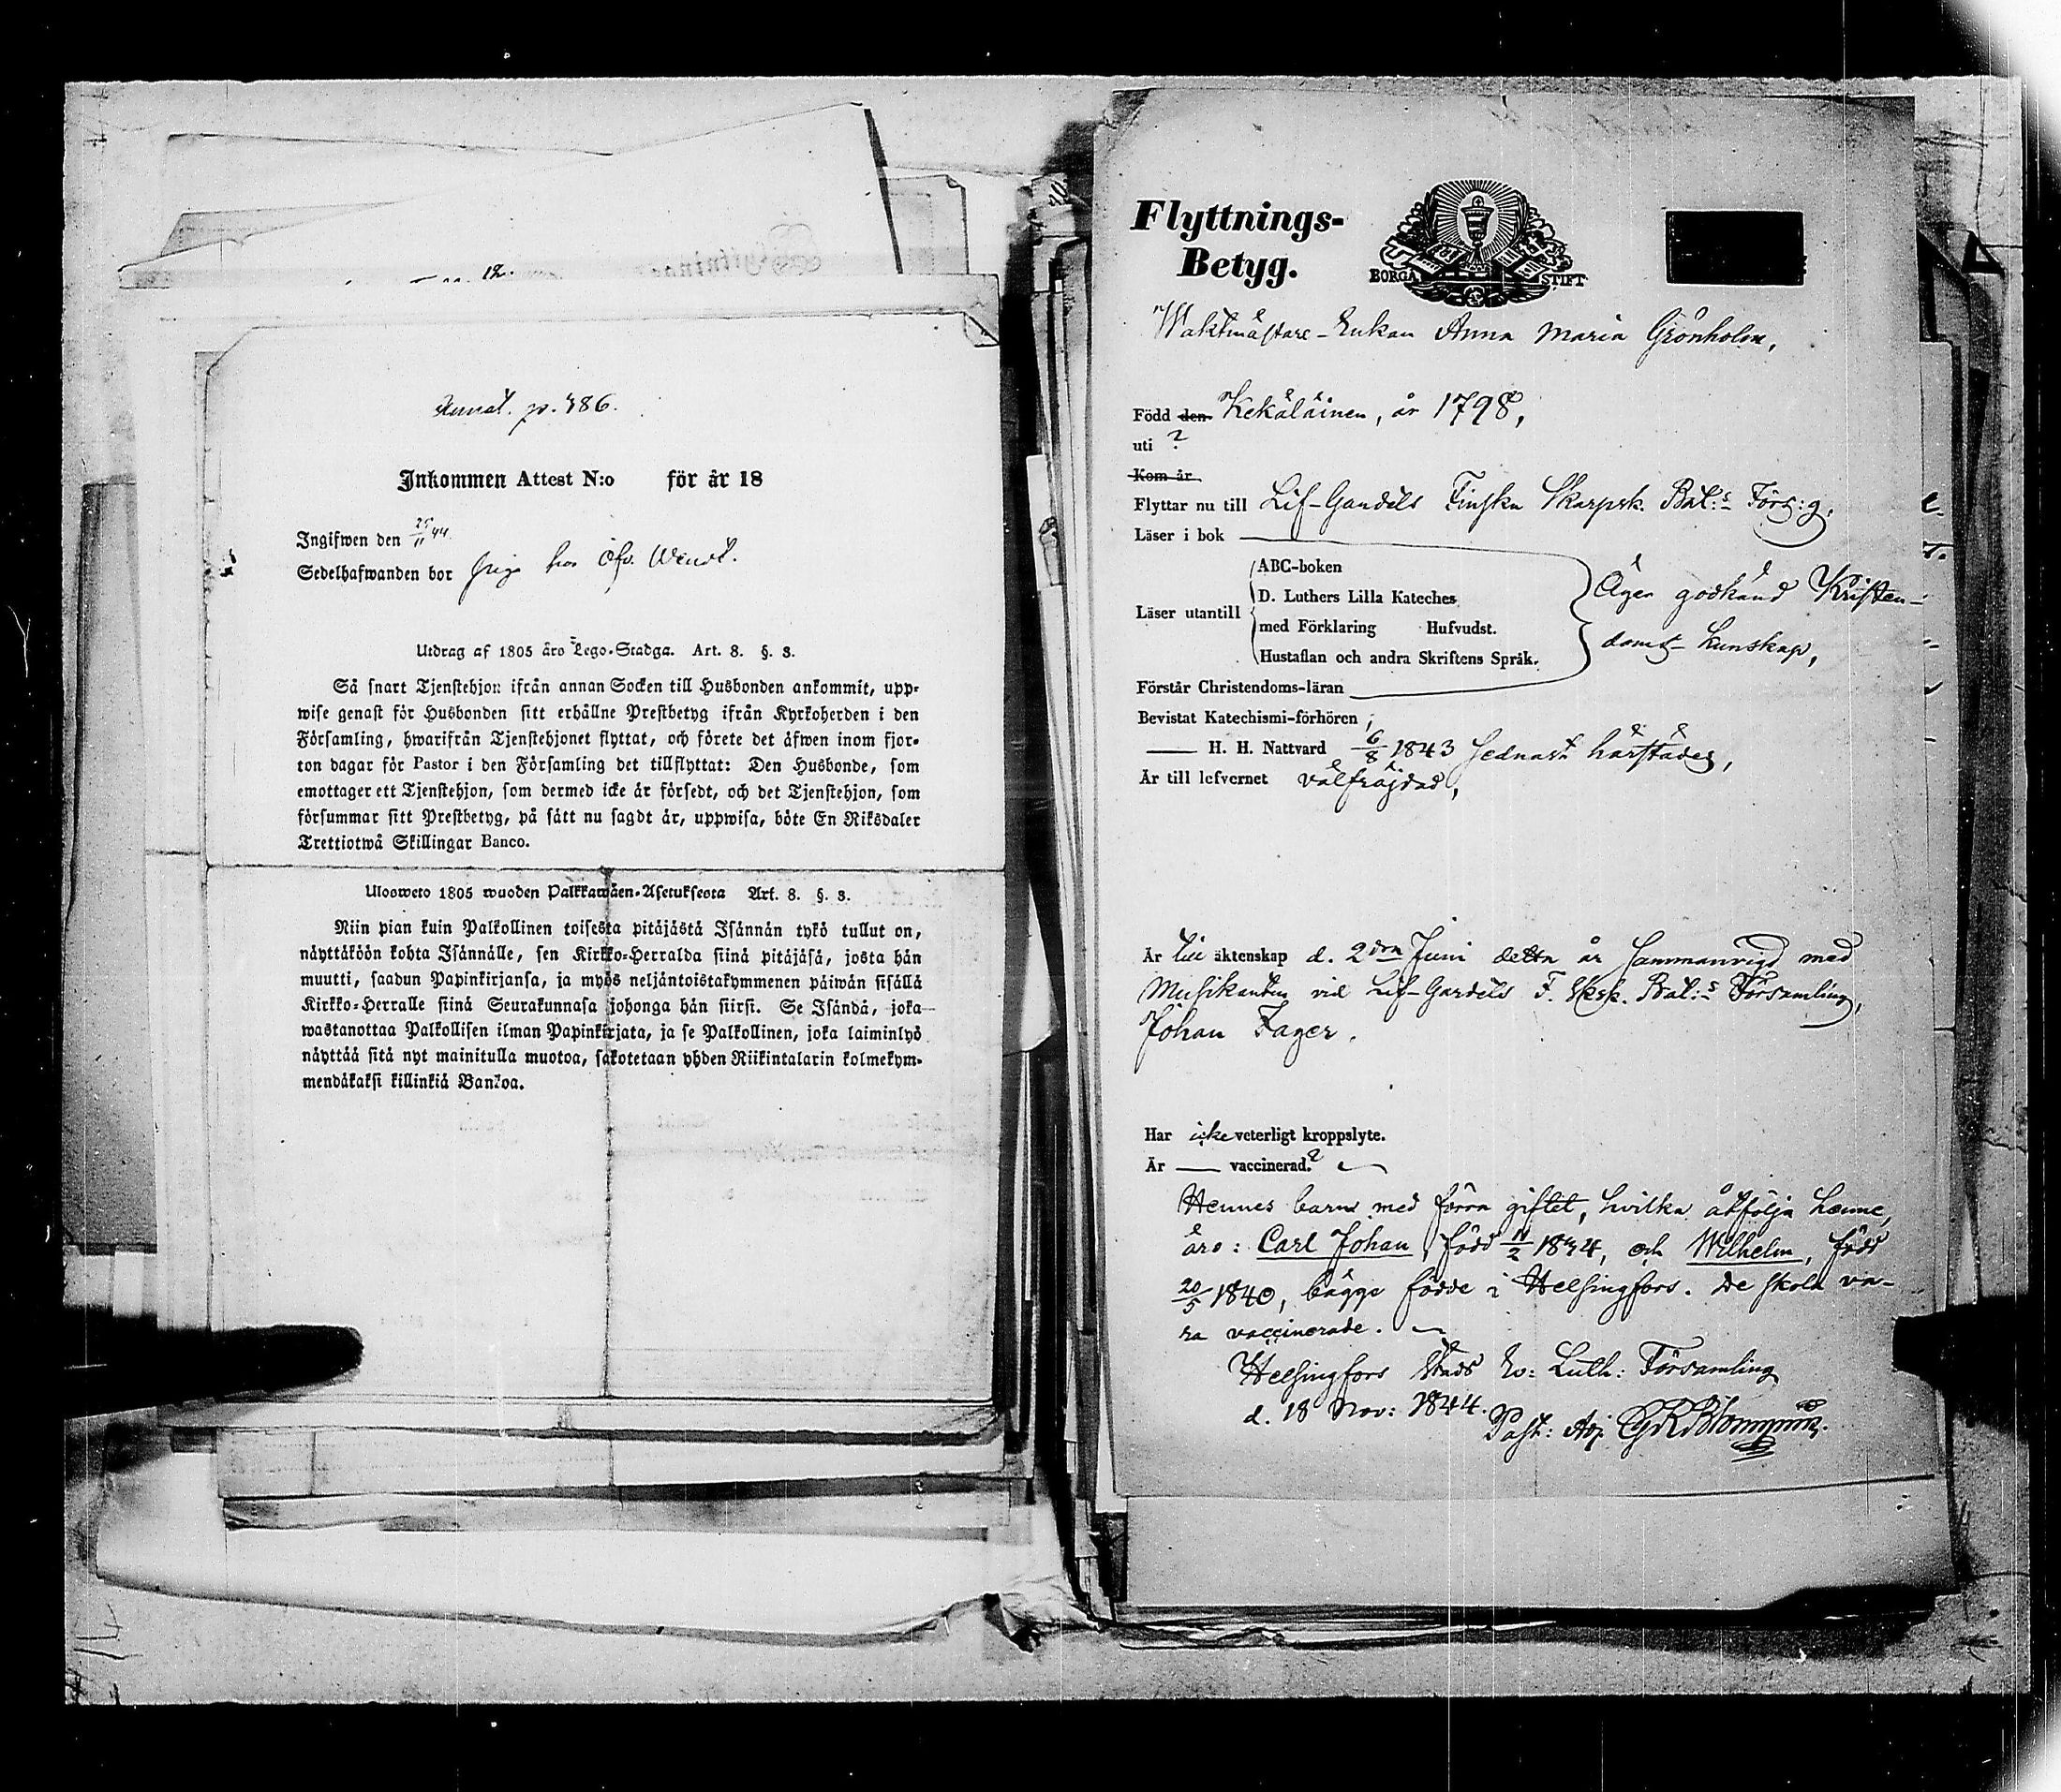 p. 486.
Inkommen Attest N:o för år 18
Ingifwen den 25/11 44.
Sedelhafwanden bor hos Öfv. Wendt.
Utdrag af 1805 års Lego-Stadga. Art. 8. §. 3.
Så snart Tjenstehjon ifrån annan Socken till Husbonden ankommit, upp-
wise genast för Husbonden sitt erhållne Prestbetyg ifrån Kyrkoherden i den
Församling, hwarifrån Tjenstehjonet flyttat, och förete det äfwen inom fjor-
ton dagar för Pastor i den Församling det tillflyttat: Den Husbonde, som
emottager ett Tjenstehjon, som dermed icke är försedt, och det Tjenstehjon, som
försummar sitt Prestbetyg, på sätt nu sagdt är, uppwisa, böte En Riksdaler
Trettiotwå Skillingar Banco.
Ulosweto 1805 wuoden Palkkawäen-Asetuksesta Art. 8. §. 3.
Niin pian kuin Palkollinen toisesta pitäjästä Isännän tykö tullut on,
näyttäköön kohta Isännälle, sen Kirkko-Herralda siinä pitäjäsä, josta hän
muutti, saadun Papinkirjansa, ja myös neljäntoistakymmenen päiwän sisällä
Kirkko-Herralle siinä Seurakunnasa johonga hän siirsi. Se Isändä, joka
wastanottaa Palkollisen ilman Papinkirjata, ja se Palkollinen, joka laiminlyö
näyttää sitä nyt mainitulla muotoa, sakotetaan yhden Riikintalarin kolmekym-
mendäkaksi killinkiä Bankoa.
Flyttnings-
Betyg.
BORGÅ STIFT
Waktmästare-Enkan Anna Maria Grönholm,
Född den Kekäläinen, år 1798,
uti ?
Kom år
Flyttar nu till Lif-Gardets Finska Skarpsk. Bat:s Förs:g,
Läser i bok
Läser utantill
ABC-boken
D. Luthers Lilla Kateches
med Förklaring Hufvudst.
Hustaflan och andra Skriftens Språk.
Äger godkänd Kristen-
doms-kunskap,
Förstår Christendoms-läran
Bevistat Katechismi-förhören,
H. H. Nattvard 6/8 1843 sednast härstädes,
Är till lefvernet välfräjdad,
Är till äktenskap d. 2dra Juni detta år sammanvigd med
Musikanten vid Lif-Gardets F. Sksk. Bat:s Församling,
Johan Fager.
Har icke veterligt kroppslyte.
Är — vaccinerad.?
Hennes barn med förra giftet, hvilka åtfölja henne,
äro: Carl Johan, född 11/2 1834, och Wilhelm, född
20/5 1840, bägge födde i Helsingfors. De skola va-
ra vaccinerade.
Helsingfors Stads Ev: Luth: Församling
d. 18 Nov: 1844.
Past: Adj